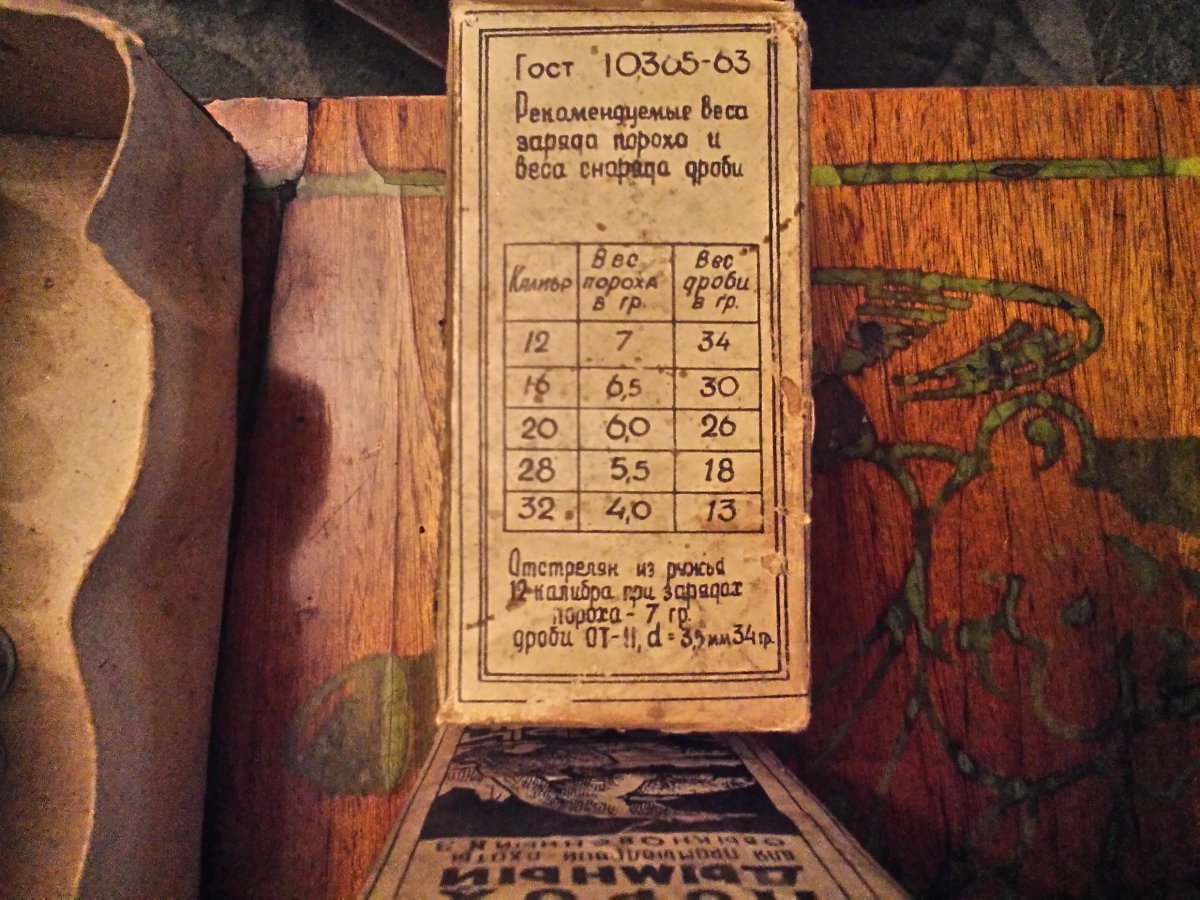 Гост 10365-63
Рекомендуемые веса
заряда пороха и
веса снаряда дроби
Калибр Вес пороха в гр. Вес дроби в гр.
12 7 34
16 6,5 30
20 6,0 26
28 5,5 18
32 4,0 13
Отстрелян из ружья
12 калибра при зарядах
пороха - 7 гр.
дроби ОТ-II, d = 3,5 мм 34 гр.
ОБЫКНОВЕННЫЙ
ДЛЯ ПРОМЫСЛОВОЙ ОХОТЫ
ДЫМНЫЙ
ПОРОХ